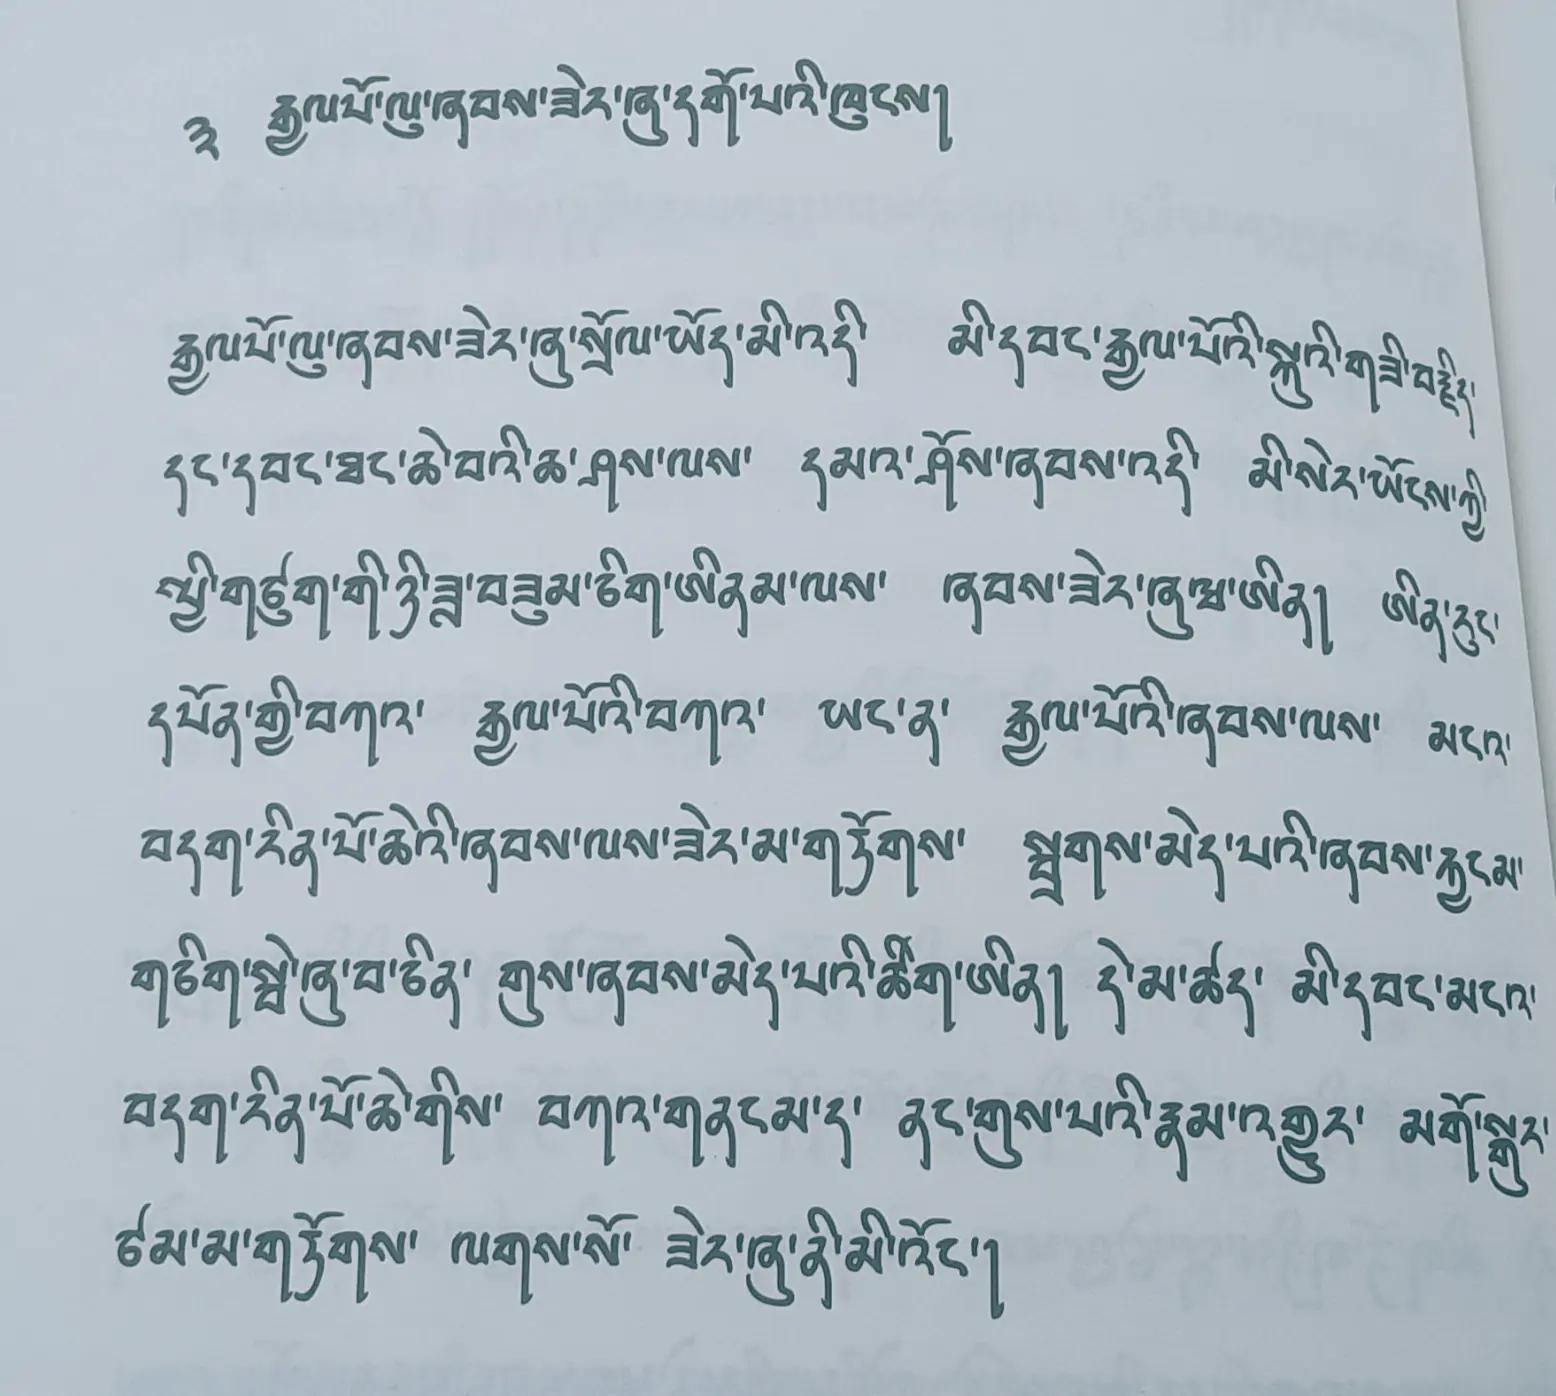 ༣ རྒྱལཔོ་ལུ་ཞབས་ཟེར་ཞུ་དགོ་པའི་ཁུངས།
རྒྱལཔོ་ལུ་ཞབས་ཟེར་ཞུ་སྲོལ་ཡོད་མི་འདི མི་དབང་རྒྱལ་པོའི་སྐུའི་གཟི་བརྗིད་
དང་དབང་ཐང་ཆེ་བའི་ཆ་ཤས་ལས་ དམའ་ཤོས་ཞབས་འདི མི་སེར་ཡོངས་ཀྱི
སྤྱི་གཙུག་གི་ཉི་ཟླ་བཟུམ་ཅིག་ཨིནམ་ལས་ ཞབས་ཟེར་ཞུཝ་ཨིན། ཨིན་རུང་
དཔོན་གྱི་བཀའ་ རྒྱལ་པོའི་བཀའ་ ཡང་ན་ རྒྱལ་པོའི་ཞབས་ལས་ མངའ་
བདག་རིན་པོ་ཆེའི་ཞབས་ལས་ཟེར་མ་གཏོགས་ སྦྲགས་མེད་པའི་ཞབས་རྐྱངམ་
གཅིག་སྦེ་ཞུ་བ་ཅིན་ གུས་ཞབས་མེད་པའི་ཚིག་ཨིན། དེ་མ་ཚད་ མི་དབང་མངའ་
བདག་རིན་པོ་ཆེ་གིས་ བཀའ་གནངམ་ད་ ནང་གུས་པའི་རྣམ་འགྱུར་ མགོ་སྒུར་
ཙམ་མ་གཏོགས་ ལགས་སོ་ ཟེར་ཞུ་ནི་མི་འོང་།